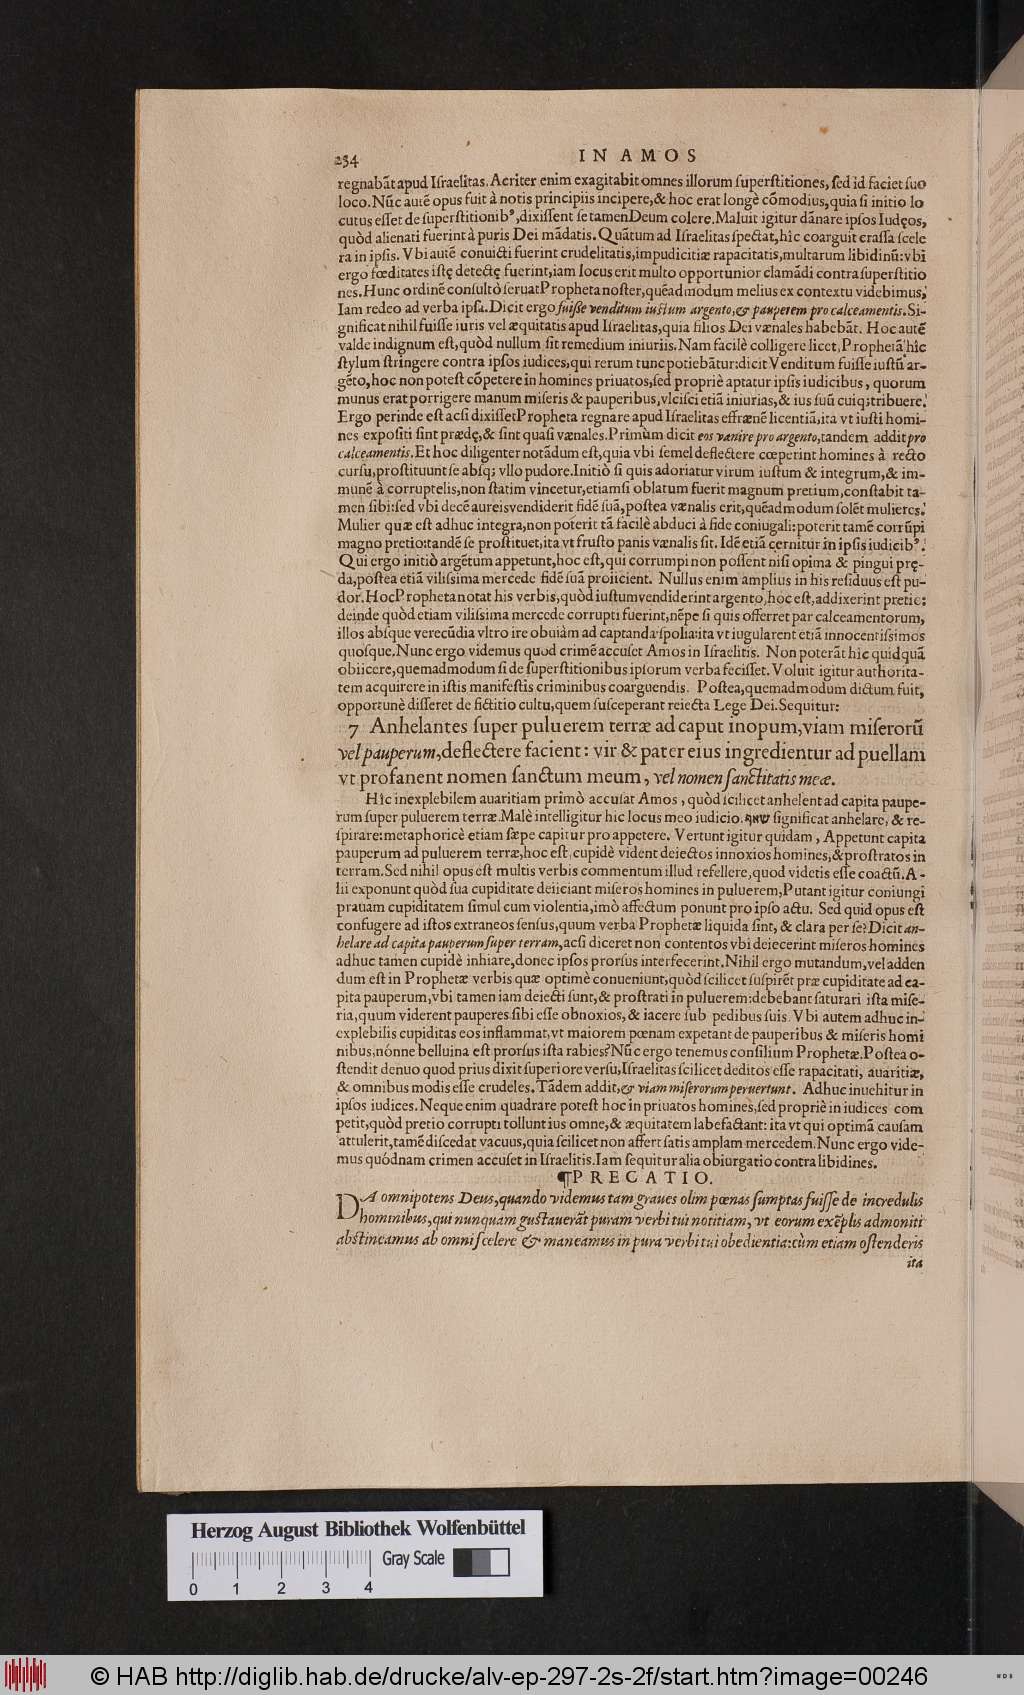 234 IN AMOS
regnabãt apud Iſraelitas. Acriter enim exagitabit omnes illorum ſuperſtitiones, ſed id faciet ſuo
loco. Nũc autẽ opus fuit à notis principiis incipere, & hoc erat longè cõmodius, quia ſi initio lo
cutus eſſet de ſuperſtitionibꝰ, dixiſſent ſe tamen Deum colere. Maluit igitur dãnare ipſos Iudęos,
quòd alienati fuerint à puris Dei mãdatis. Quãtum ad Iſraelitas ſpectat, hîc coarguit craſſa ſcele
ra in ipſis. Vbi autẽ conuicti fuerint crudelitatis, impudicitiæ rapacitatis, multarum libidinũ: vbi
ergo fœditates iſtę detectę fuerint, iam locus erit multo opportunior clamãdi contra ſuperſtitio
nes. Hunc ordinẽ conſultò ſeruat Propheta noſter, quẽadmodum melius ex contextu videbimus,
Iam redeo ad verba ipſa. Dicit ergo fuiſſe venditum iuſtum argento, & pauperem pro calceamentis. Si-
gnificat nihil fuiſſe iuris vel æquitatis apud Iſraelitas, quia filios Dei vænales habebãt. Hoc autẽ
valde indignum eſt, quòd nullum ſit remedium iniuriis. Nam facilè colligere licet, Prophetã hîc
ſtylum ſtringere contra ipſos iudices, qui rerum tunc potiebãtur: dicit Venditum fuiſſe iuſtũ ar-
gẽto, hoc non poteſt cõpetere in homines priuatos, ſed propriè aptatur ipſis iudicibus, quorum
munus erat porrigere manum miſeris & pauperibus, vlciſci etiã iniurias, & ius ſuũ cuiq; tribuere.
Ergo perinde eſt acſi dixiſſet Propheta regnare apud Iſraelitas effrænẽ licentiã, ita vt iuſti homi-
nes expoſiti ſint prædę, & ſint quaſi vænales. Primùm dicit eos vænire pro argento, tandem addit pro
calceamentis. Et hoc diligenter notãdum eſt, quia vbi ſemel deflectere cœperint homines à recto
curſu, proſtituunt ſe abſq; vllo pudore. Initiò ſi quis adoriatur virum iuſtum & integrum, & im-
munẽ à corruptelis, non ſtatim vincetur, etiamſi oblatum fuerit magnum pretium, conſtabit ta-
men ſibi: ſed vbi decẽ aureis vendiderit fidẽ ſuã, poſtea vænalis erit, quẽadmodum ſolẽt mulieres.
Mulier quæ eſt adhuc integra, non poterit tã facilè abduci à fide coniugali: poterit tamẽ corrũpi
magno pretio: tandẽ ſe proſtituet, ita vt fruſto panis vænalis ſit. Idẽ etiã cernitur in ipſis iudicibꝰ.
Qui ergo initiò argẽtum appetunt, hoc eſt, qui corrumpi non poſſent niſi opima & pingui prę-
da, poſtea etiã viliſsima mercede fidẽ ſuã proiicient. Nullus enim amplius in his reſiduus eſt pu-
dor. Hoc Propheta notat his verbis, quòd iuſtum vendiderint argento, hoc eſt, addixerint pretio:
deinde quòd etiam viliſsima mercede corrupti fuerint, nẽpe ſi quis offerret par calceamentorum,
illos abſque verecũdia vltro ire obuiàm ad captanda ſpolia: ita vt iugularent etiã innocentiſsimos
quoſque. Nunc ergo videmus quod crimẽ accuſet Amos in Iſraelitis. Non poterãt hîc quidquã
obiicere, quemadmodum ſi de ſuperſtitionibus ipſorum verba feciſſet. Voluit igitur authorita-
tem acquirere in iſtis manifeſtis criminibus coarguendis. Poſtea, quemadmodum dictum fuit,
opportunè diſſeret de fictitio cultu, quem ſuſceperant reiecta Lege Dei. Sequitur:
7 Anhelantes ſuper puluerem terræ ad caput inopum, viam miſerorũ
vel pauperum, deflectere facient: vir & pater eius ingredientur ad puellam
vt profanent nomen ſanctum meum, vel nomen ſanctitatis meæ.
Hîc inexplebilem auaritiam primò accuſat Amos, quòd ſcilicet anhelent ad capita paupe-
rum ſuper puluerem terræ. Malè intelligitur hic locus meo iudicio. שאף ſignificat anhelare, & re-
ſpirare: metaphoricè etiam ſæpe capitur pro appetere. Vertunt igitur quidam, Appetunt capita
pauperum ad puluerem terræ, hoc eſt, cupidè vident deiectos innoxios homines, & proſtratos in
terram. Sed nihil opus eſt multis verbis commentum illud refellere, quod videtis eſſe coactũ. A-
lii exponunt quòd ſua cupiditate deiiciant miſeros homines in puluerem, Putant igitur coniungi
prauam cupiditatem ſimul cum violentia, imò affectum ponunt pro ipſo actu. Sed quid opus eſt
confugere ad iſtos extraneos ſenſus, quum verba Prophetæ liquida ſint, & clara per ſe? Dicit an-
helare ad capita pauperum ſuper terram, acſi diceret non contentos vbi deiecerint miſeros homines
adhuc tamen cupidè inhiare, donec ipſos prorſus interfecerint. Nihil ergo mutandum, vel adden
dum eſt in Prophetæ verbis quæ optimè conueniunt, quòd ſcilicet ſuſpirẽt præ cupiditate ad ca-
pita pauperum, vbi tamen iam deiecti ſunt, & proſtrati in puluerem: debebant ſaturari iſta miſe-
ria, quum viderent pauperes ſibi eſſe obnoxios, & iacere ſub pedibus ſuis. Vbi autem adhuc in-
explebilis cupiditas eos inflammat, vt maiorem pœnam expetant de pauperibus & miſeris homi
nibus, nónne belluina eſt prorſus iſta rabies? Nũc ergo tenemus conſilium Prophetæ. Poſtea o-
ſtendit denuo quod prius dixit ſuperiore verſu, Iſraelitas ſcilicet deditos eſſe rapacitati, auaritiæ,
& omnibus modis eſſe crudeles. Tãdem addit, & viam miſerorum peruertunt. Adhuc inuehitur in
ipſos iudices. Neque enim quadrare poteſt hoc in priuatos homines, ſed propriè in iudices com
petit, quòd pretio corrupti tollunt ius omne, & æquitatem labefactant: ita vt qui optimã cauſam
attulerit, tamẽ diſcedat vacuus, quia ſcilicet non affert ſatis amplam mercedem. Nunc ergo vide-
mus quódnam crimen accuſet in Iſraelitis. Iam ſequitur alia obiurgatio contra libidines.
¶PRECATIO.
DA omnipotens Deus, quando videmus tam graues olim pœnas ſumptas fuiſſe de incredulis
hominibus, qui nunquam guſtauerãt puram verbi tui notitiam, vt eorum exẽplis admoniti
abſtineamus ab omni ſcelere & maneamus in pura verbi tui obedientia: cùm etiam oſtenderis
ita
Herzog August Bibliothek Wolfenbüttel
Gray Scale
0 1 2 3 4
© HAB http://diglib.hab.de/drucke/alv-ep-297-2s-2f/start.htm?image=00246